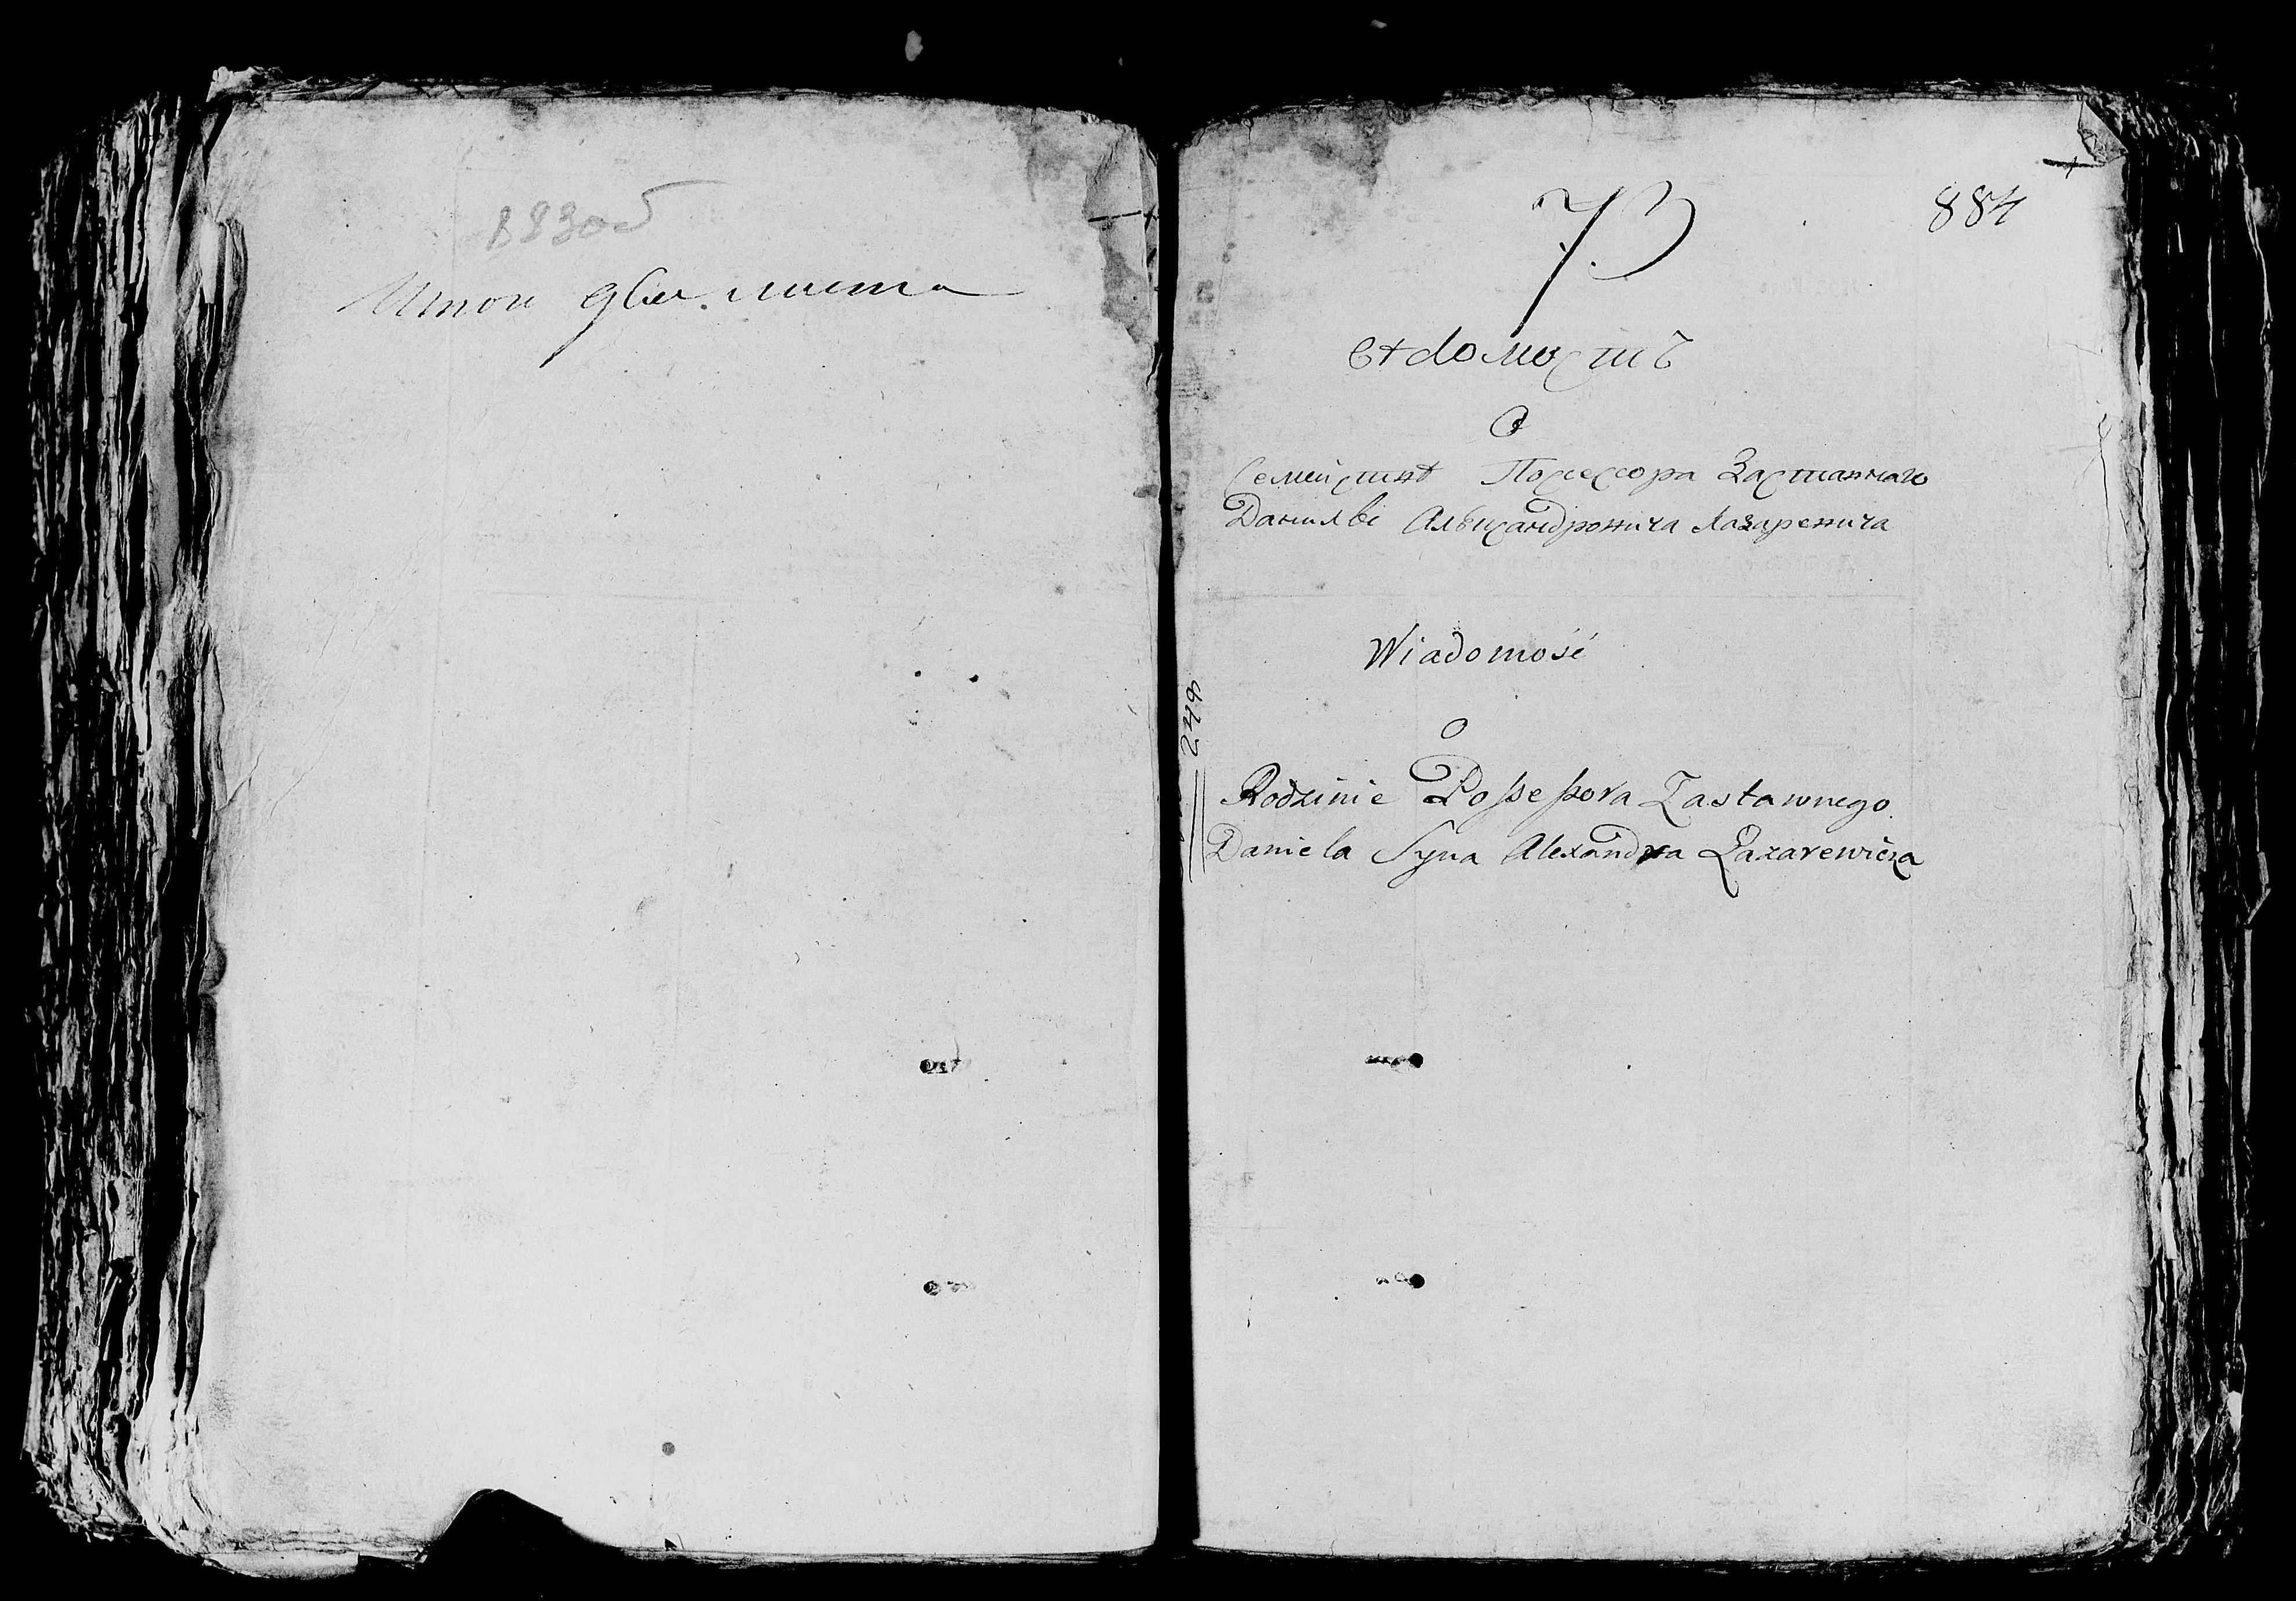 883об
Итого два листа
73
884
вѣдомость
О
Семействѣ Посессора Заставнаго
Даніеля Александровича Лазаревича
Wiadomość
O
Rodzinie Possessora Zastawnego
Daniela Syna Alexandra Łazarewicza